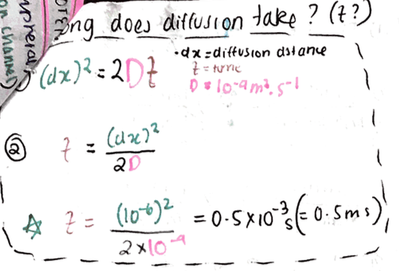 does diffusion take? (t?)
(dx)² = 2Dt
• dx = diffusion dstance
t = time
D = 10⁻⁹ m². s⁻¹
② t = (dx)² / 2D
☆ t = (10⁻⁶)² / 2 × 10⁻⁹ = 0.5 × 10⁻³ s (= 0.5 ms)